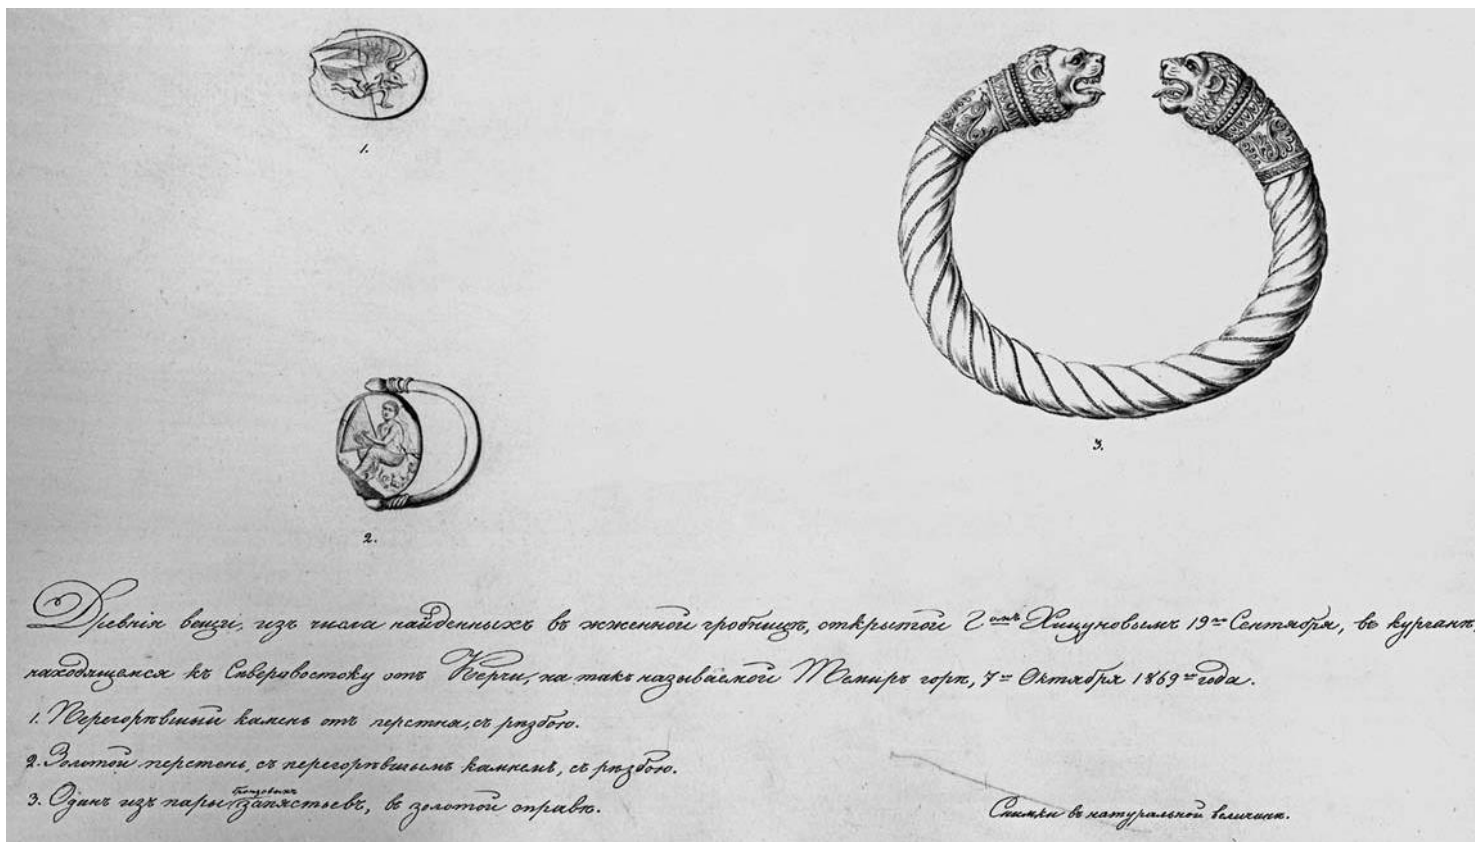 1.
3.
2.
Древнія вещи, изъ числа найденныхъ въ жженной гробницѣ, открытой Г омъ Хицуновымъ 19 го Сентября, въ курганѣ,
находящемся къ Сѣверовостоку отъ Керчи, на такъ называемой Темиръ горѣ, 7 го Октября 1869 го года.
1. Перегорѣвшій камень отъ перстня, съ рѣзбою.
2. Золотой перстень, съ перегорѣвшимъ камнемъ, съ рѣзбою.
бронзовыхъ
3. Одинъ изъ пары запястьевъ, въ золотой оправѣ.
Снимки въ натуральной величинѣ.